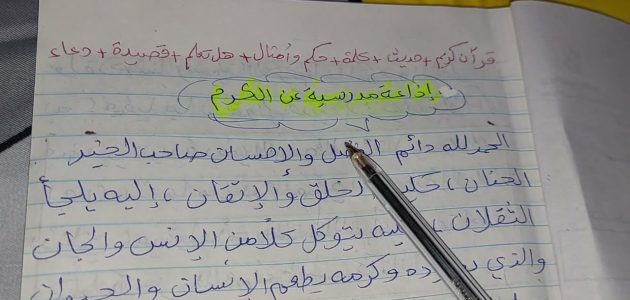 قرآن كريم + حديث + كلمة + حكم وأمثال + هل تعلم + قصيدة + دعاء
إذاعة مدرسية عن الكرم
الحمد لله دائم الفضل والإحسان صاحب الخير
الحنان، الخلق والإتقان، إليه يلجأ
الثقلان، يتوكل كلا من الإنس والجان
والذي وكرمه يطعم الإنسان والحيوان